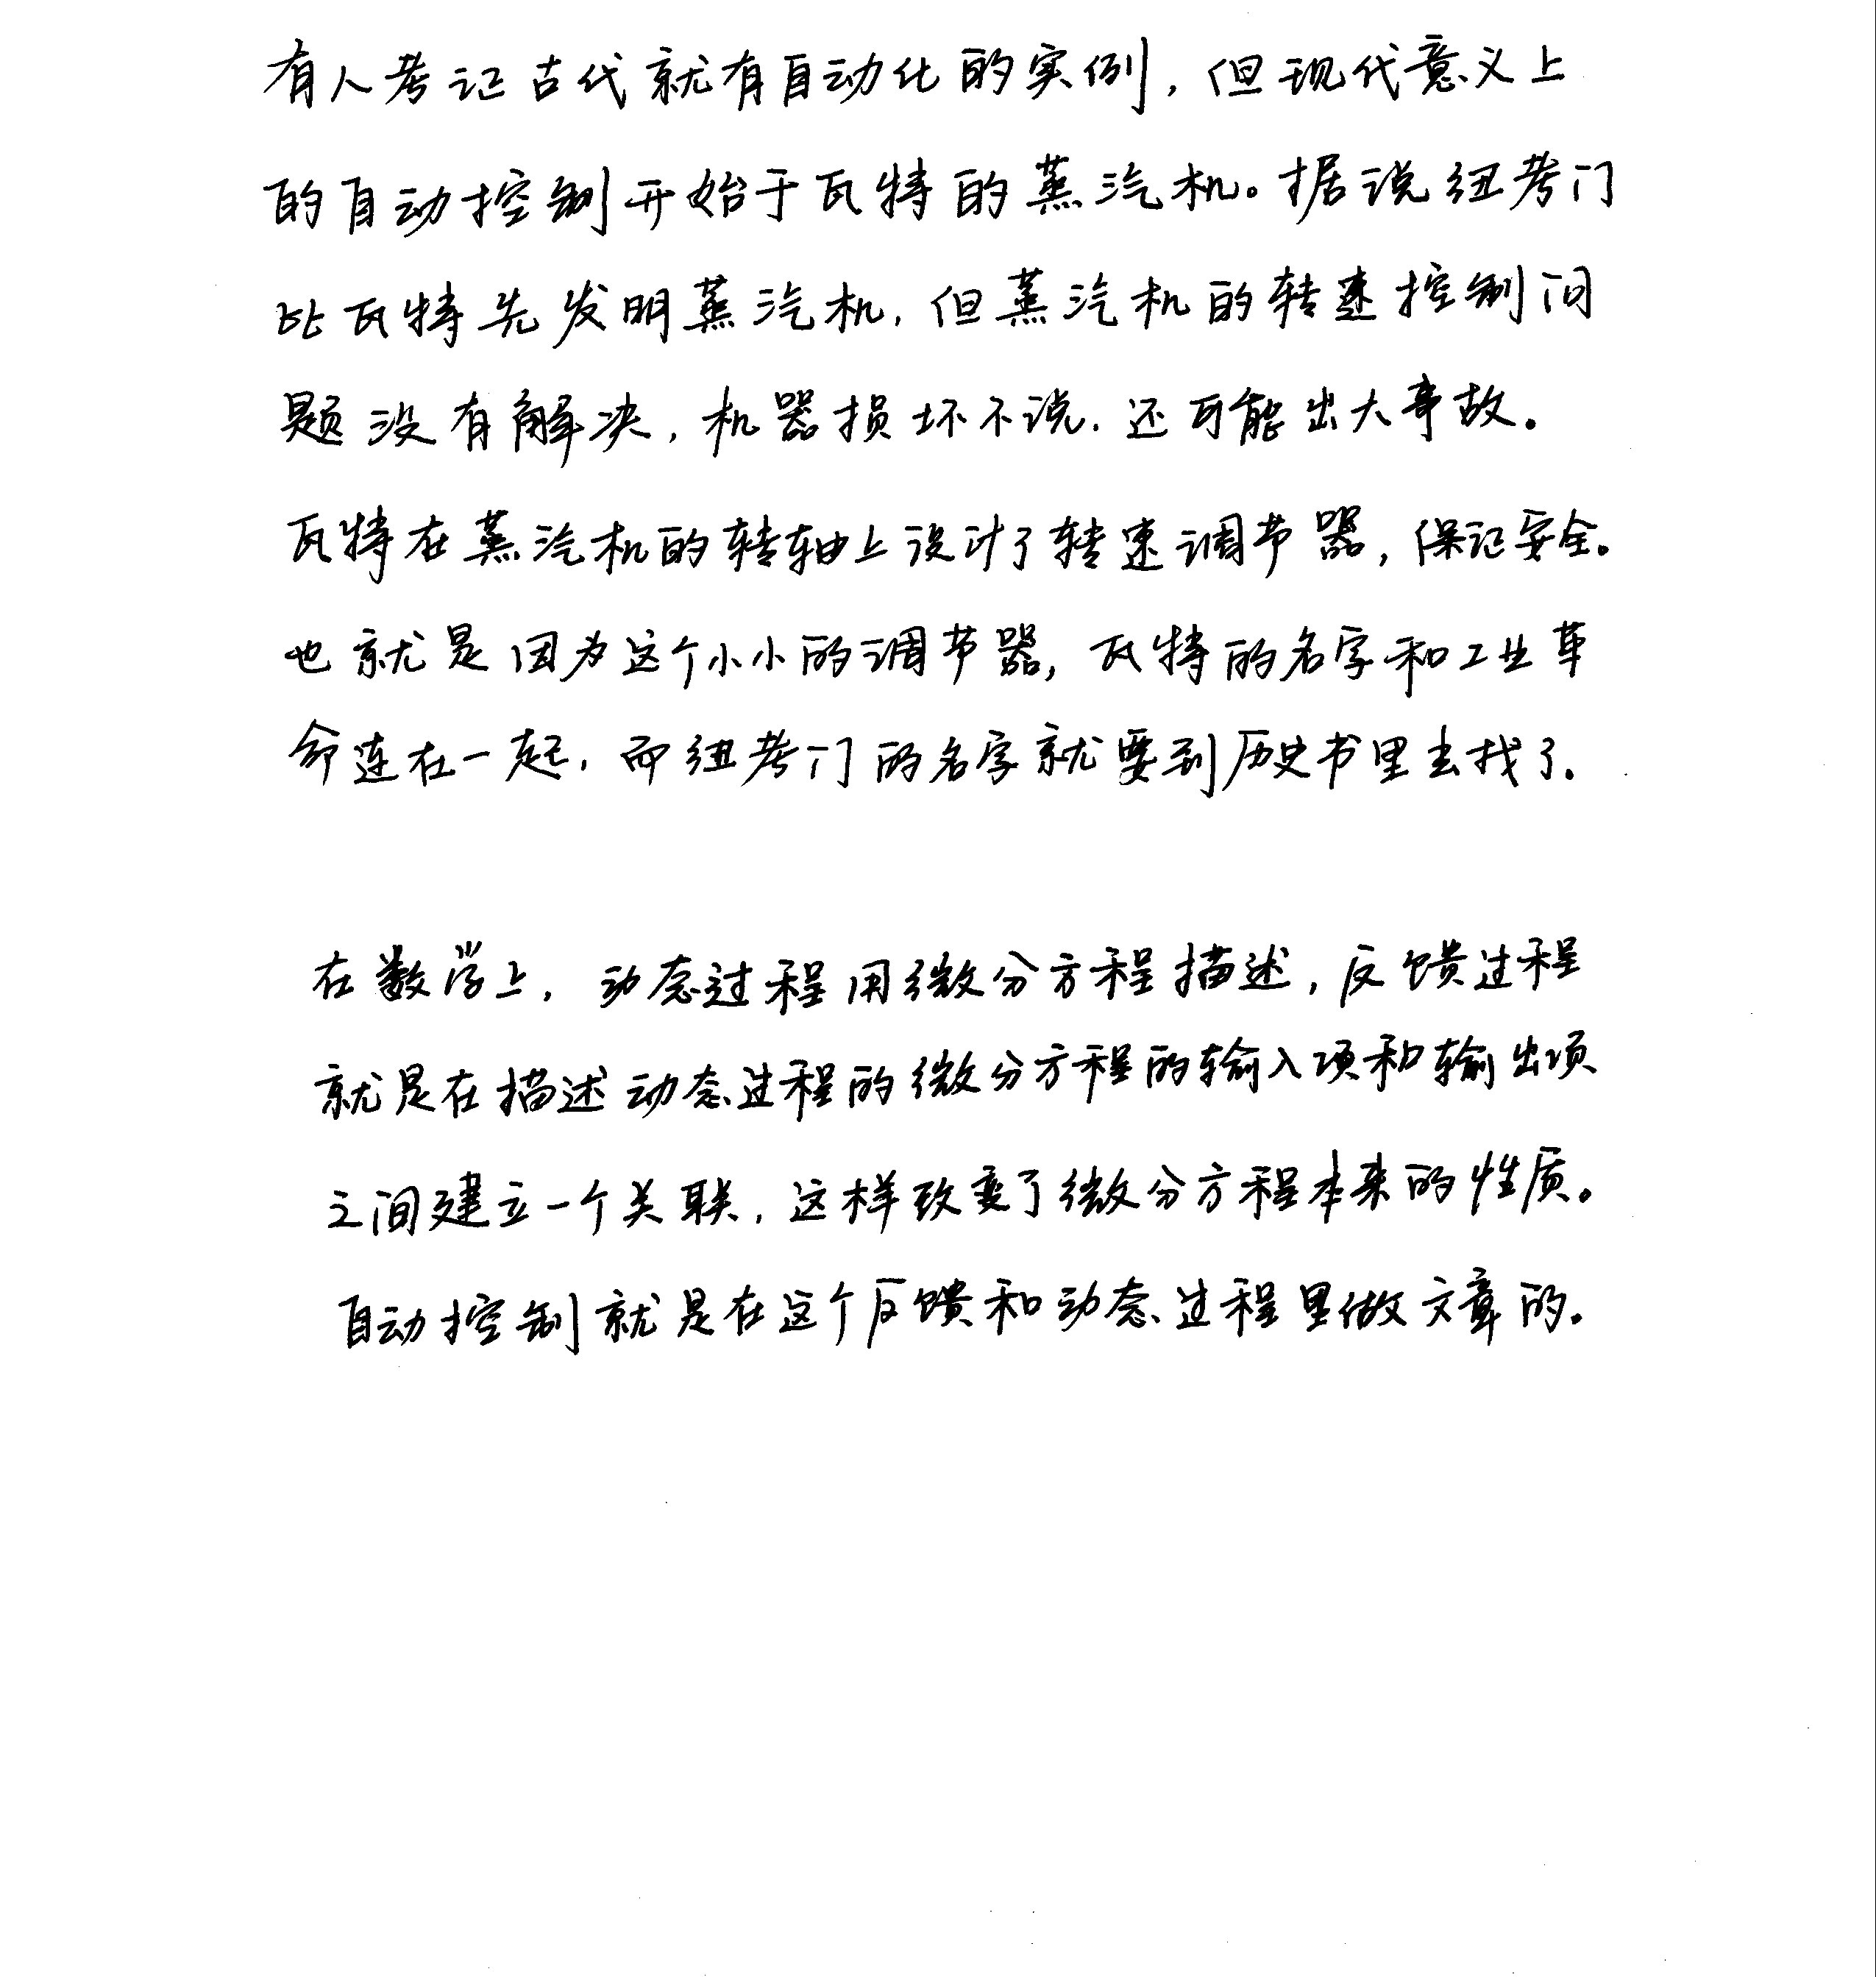 有人考证古代就有自动化的实例，但现代意义上
的自动控制开始于瓦特的蒸汽机。据说纽考门
比瓦特先发明蒸汽机，但蒸汽机的转速控制问
题没有解决，机器损坏不说，还可能出大事故。
瓦特在蒸汽机的转轴上设计了转速调节器，保证安全。
也就是因为这个小小的调节器，瓦特的名字和工业革
命连在一起，而纽考门的名字就要到历史书里去找了。
在数学上，动态过程用微分方程描述，反馈过程
就是在描述动态过程的微分方程的输入项和输出项
之间建立一个关联，这样改变了微分方程本来的性质。
自动控制就是在这个反馈和动态过程里做文章的。